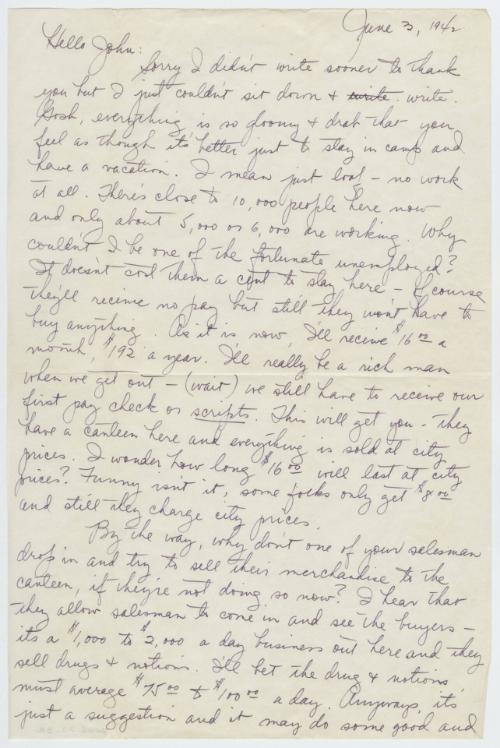 June 3, 1942
Hello John:
Sorry I didn't write sooner to thank
you but I just couldn't sit down & write. write.
Gosh, everything is so gloomy & drab that you
feel as though it's better just to stay in camp and
have a vacation. I mean just loaf – no work
at all. There's close to 10,000 people here now
and only about 5,000 or 6,000 are working. Why
couldn't I be one of the fortunate unemployed?
It doesn't cost them a cent to stay here – of course
they'll receive no pay but still they won't have to
buy anything. As it is now, I'll receive $16.00 a
month, $192 a year. I'll really be a rich man
when we get out – (wait) we still have to receive our
first pay check or scripts. This will get you – they
have a canteen here and everything is sold at city
prices. I wonder how long $16.00 will last at city
prices? Funny isn't it, some folks only get $8.00
and still they charge city prices.
By the way, why don't one of your salesman
drop in and try to sell their merchandise to the
canteen, if they're not doing so now? I hear that
they allow salesman to come in and see the buyers –
it's a $1,000 to $2,000 a day business out here and they
sell drugs & notions. I'll bet the drug & notions
must average $75.00 to $100.00 a day. Anyways, it's
just a suggestion and it may do some good and